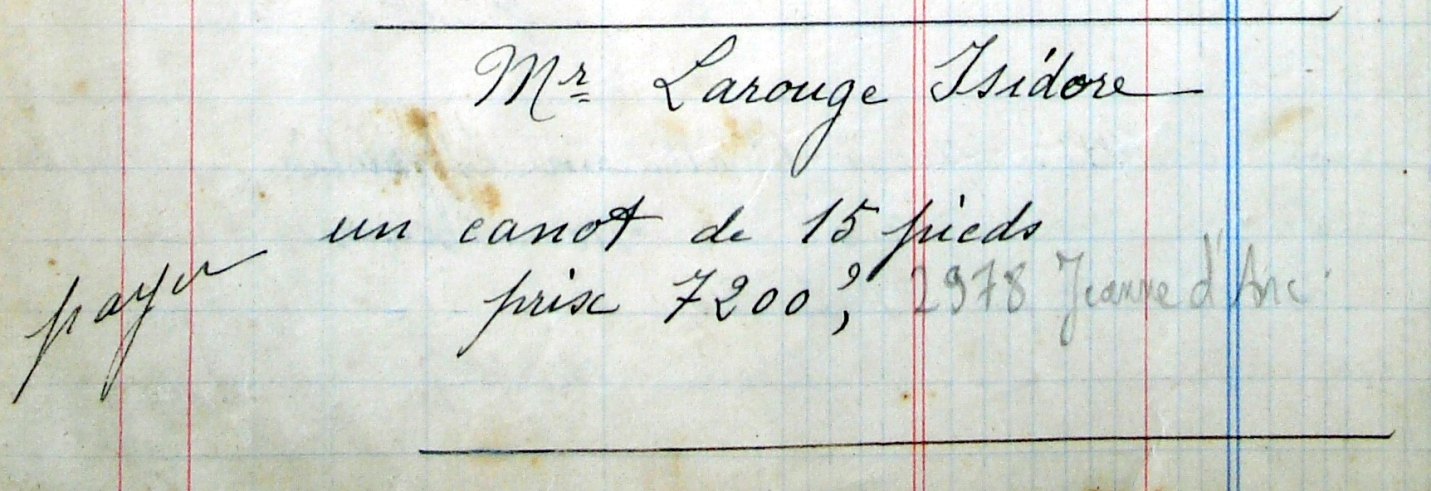 Mr Larouge Isidore
un canot de 15 pieds
payer
prix 7200, 2978 Jeanne d'Arc